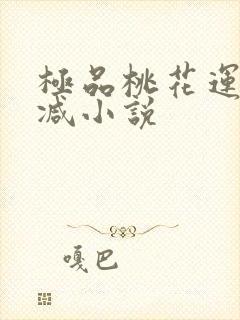 極品桃花運
減小說
嘎巴